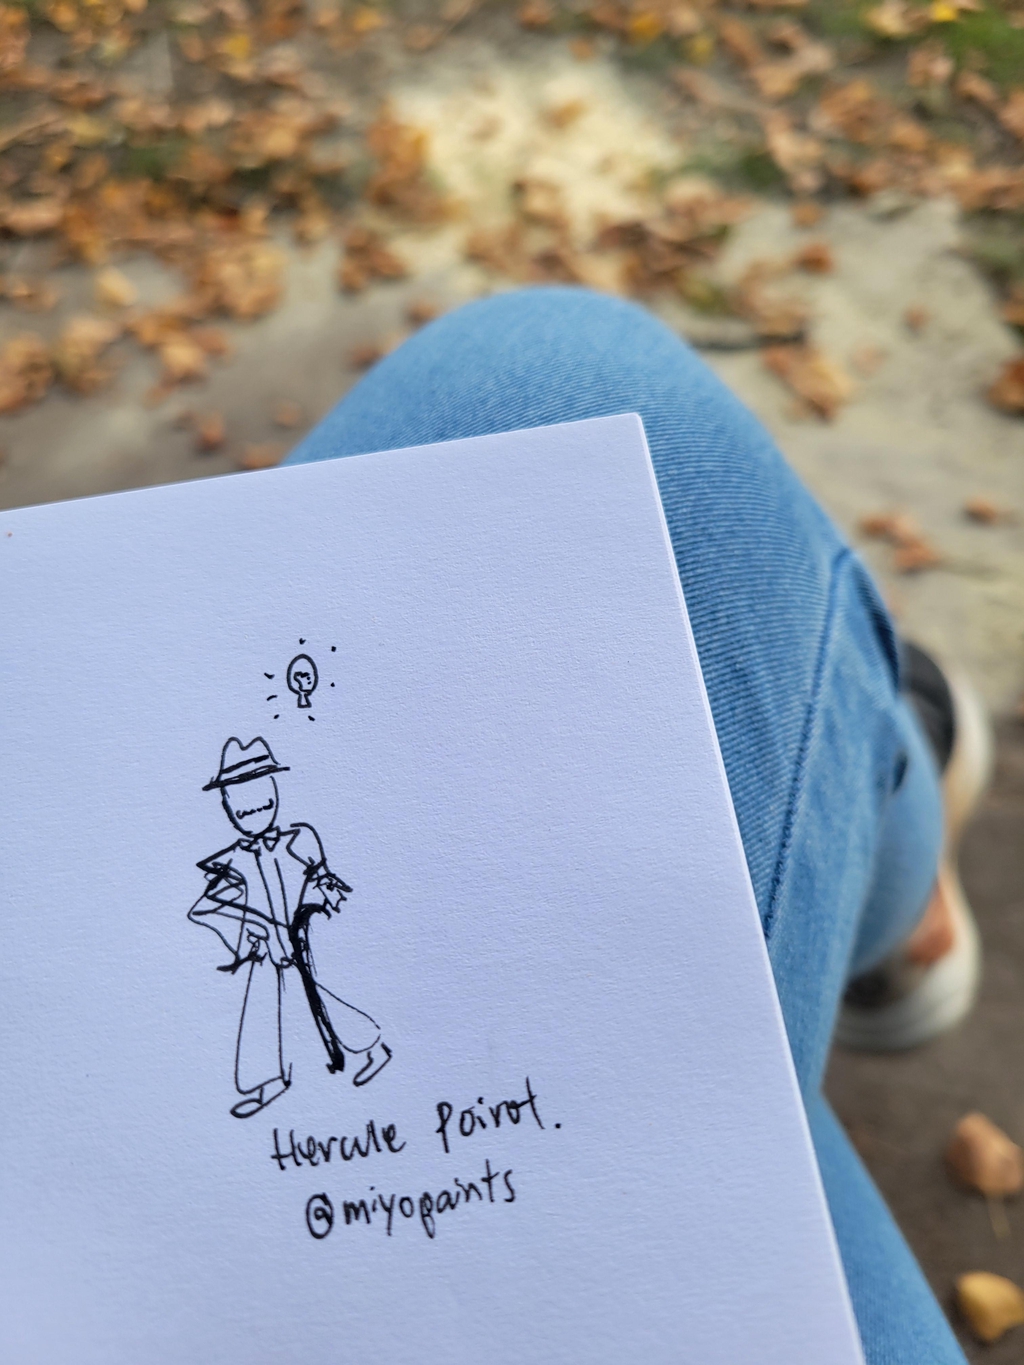 Hercule Poirot.
@miyopaints